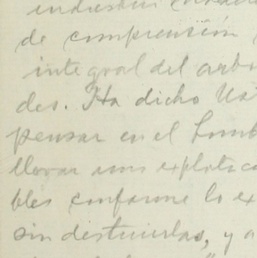 de comprensión
integral del arbo
des. Ha dicho Us
pensar en el homb
llevar una explotac
bles conforme lo ex
sin destruirlas, y a